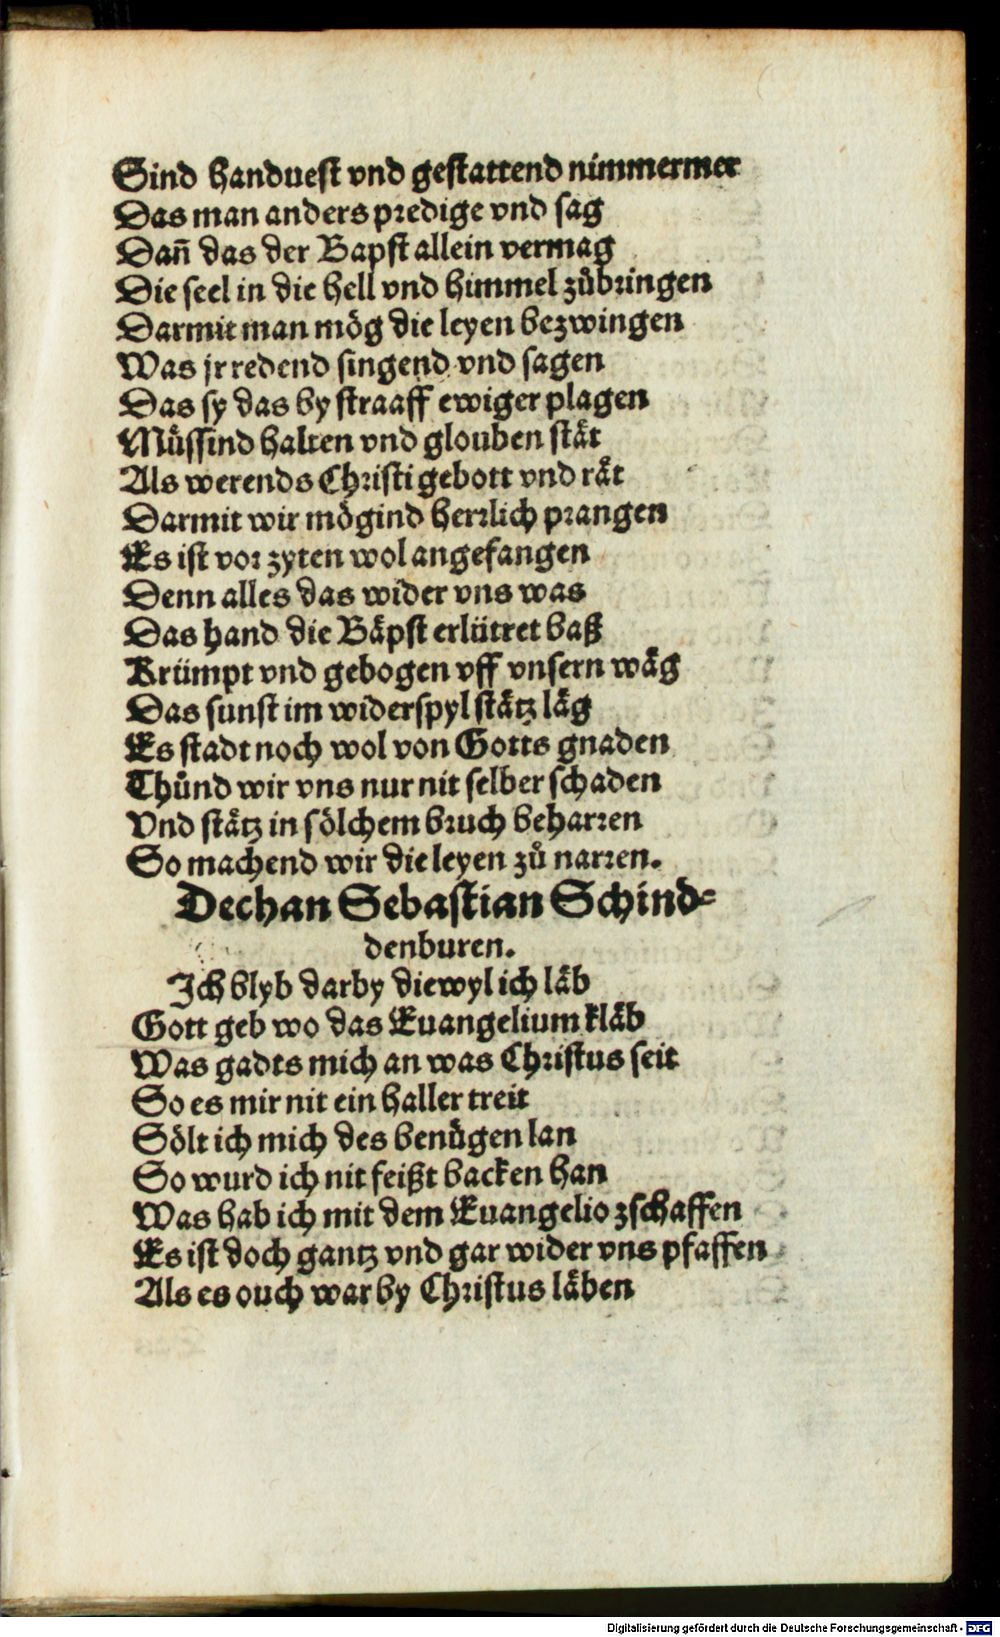 Sind handuest vnd gestattend nimmermer
Das man anders predige vnd sag
Dañ das der Bapst allein vermag
Die seel in die hell vnd himmel zůbringen
Darmit man mög die leyen bezwingen
Was jr redend singend vnd sagen
Das sy das by straaff ewiger plagen
Müssind halten vnd glouben stät
Als werends Christi gebott vnd rät
Darmit wir mögind herrlich prangen
Es ist vor zyten wol angefangen
Denn alles das wider vns was
Das hand die Bäpst erlütret baß
Krümpt vnd gebogen vff vnsern wäg
Das sunst im widerspyl stätz läg
Es stadt noch wol von Gotts gnaden
Thůnd wir vns nur nit selber schaden
Vnd stätz in sölchem bruch beharren
So machend wir die leyen zů narren.
Dechan Sebastian Schind⸗
denburen.
Ich blyb darby diewyl ich läb
Gott geb wo das Euangelium kläb
Was gadts mich an was Christus seit
So es mir nit ein haller treit
Sölt ich mich des benügen lan
So wurd ich nit feißt backen han
Was hab ich mit dem Euangelio zschaffen
Es ist doch gantz vnd gar wider vns pfaffen
Als es ouch war by Christus läben
Digitalisierung gefördert durch die Deutsche Forschungsgemeinschaft - DFG